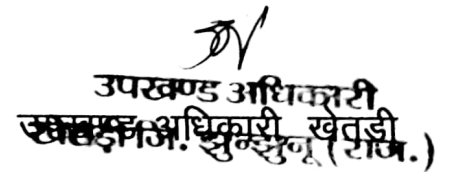 उपखण्ड अधिकारी
उपखण्ड अधिकारी, खेतड़ी
खेतड़ी जि. झुन्झुनू (राज.)